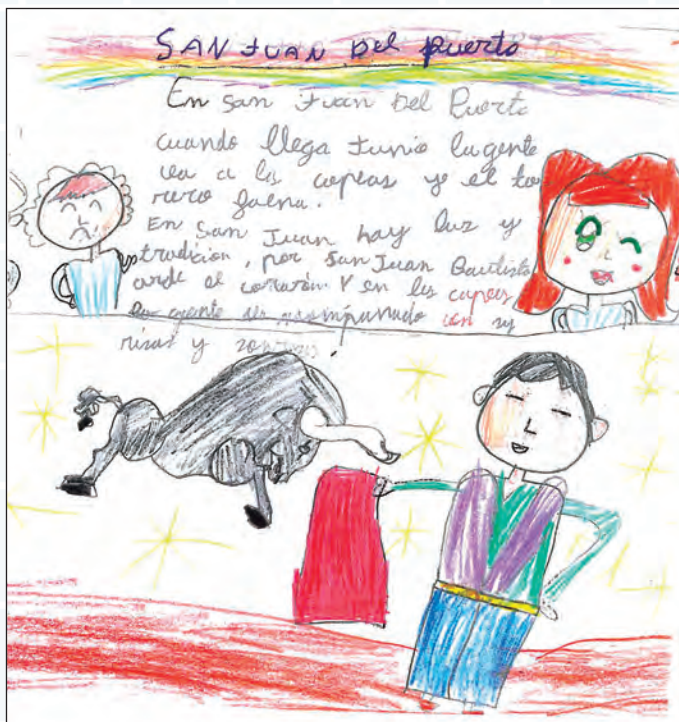 SAN JUAN DEL PUERTO
En San Juan Del Puerto
cuando llega Junio la gente
va a las capeas y el to
rero faena.
En San Juan hay luz y
tradicion, por San Juan Bautista
arde el corazón. Y en las capeas
la gente acompañado con su
risas y